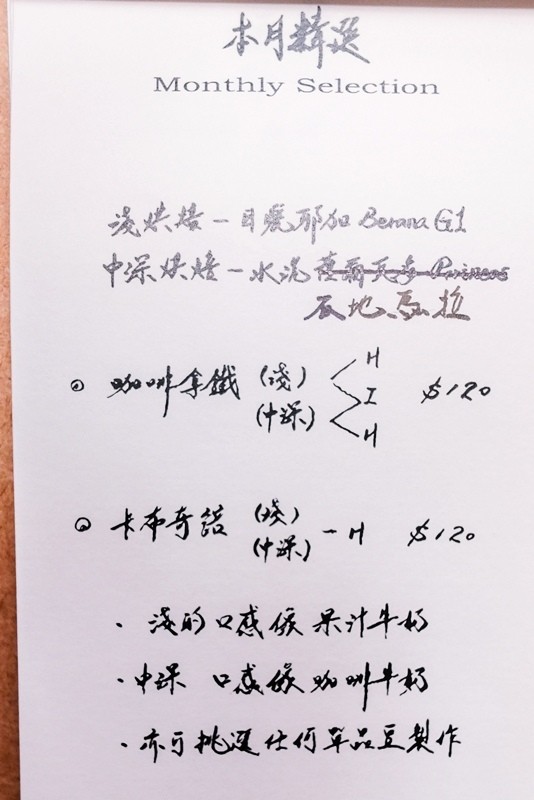 本月精選
Monthly Selection
淺烘焙－日曬耶加 Berana G1
中深烘焙－水洗薩爾瓦多
瓜地馬拉
咖啡拿鐵 (淺) H
I $120
(中深) H
卡布奇諾 (淺)
(中深) － H $120
· 淺的口感像果汁牛奶
· 中深 口感像咖啡牛奶
· 亦可挑選任何單品豆製作